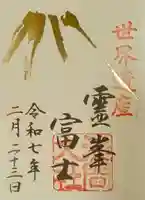 世界遺産
霊峰
富士
令和七年
二月二十三日